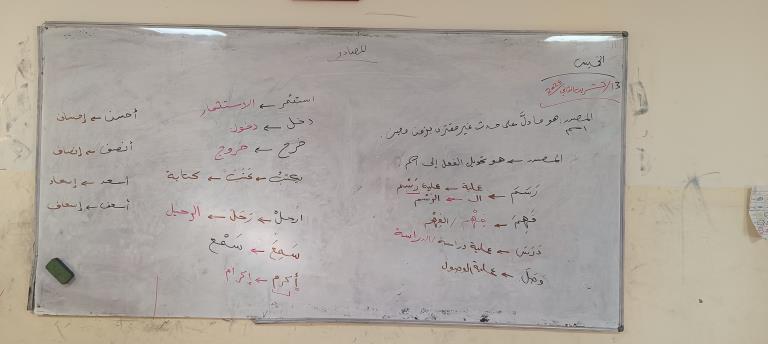 المصادر
الخميس
13/تشرين الثاني/
المصدر: هو ما دلَّ على حدث غير مقترن بزمن
اسم
المصدر ← هو تحويل الفعل إلى اسم
رَسَمَ ← عملية ← عملية رَسْم
ال ← الرسْم
فَهِمَ ← فَهْم / الفَهْم
دَرَسَ ← عملية دراسة/الدراسة
وَصَلَ ← عملية الوصول
استثمر ← الاستثمار
دخل ← دخول
خرج ← خروج
يكتبُ ← كَتَبَ ← كتابة
ارحلْ ← رَحَلَ ← الرحيل
سَمِعَ ← سَمْع
أكرم ← إكرام
أحسن ← إحسان
أنصف ← إنصاف
أسعد ← إسعاد
أسعف ← إسعاف